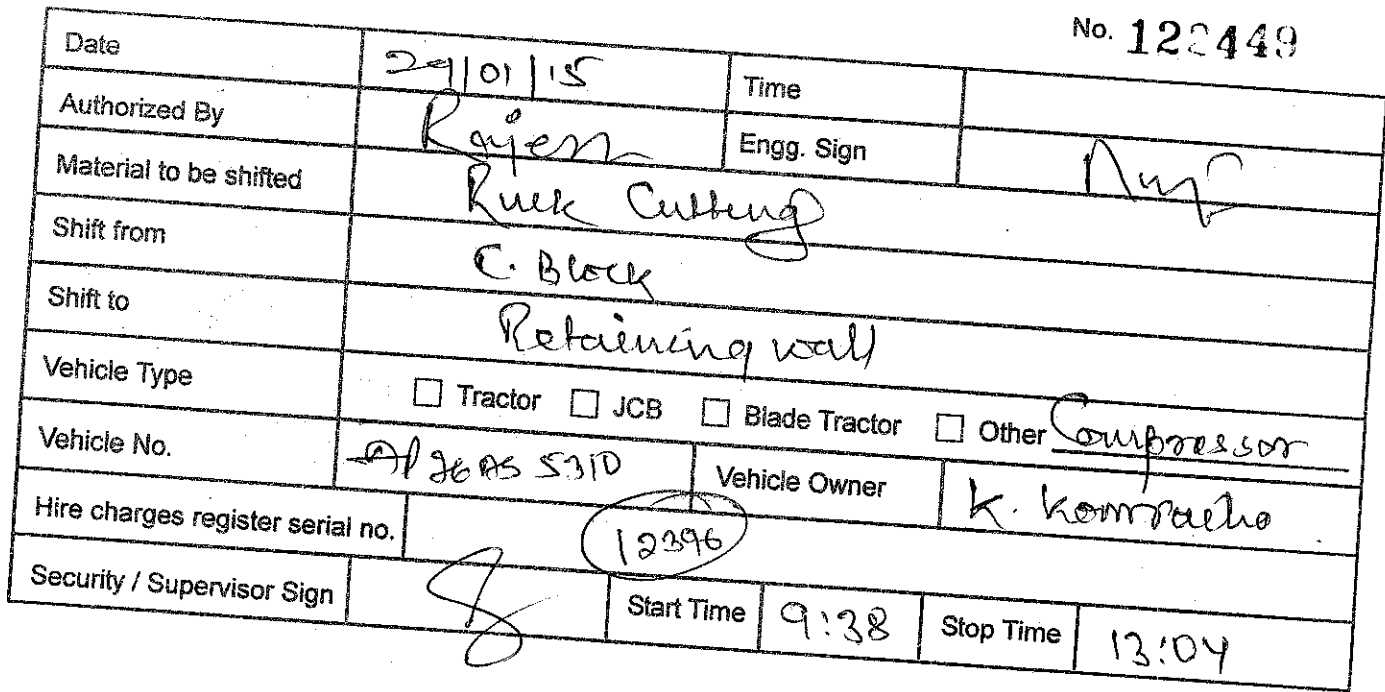 No. 122449
Date 29/01/15 Time
Authorized By Rajesh Engg. Sign
Material to be shifted Ruck Cutting
Shift from C. Block
Shift to Retaining wall
Vehicle Type Tractor JCB Blade Tractor Other Compressor
Vehicle No. AP26AS 5310 Vehicle Owner K.
Hire charges register serial no. 12396
Security / Supervisor Sign Start Time 9:38 Stop Time 13:04